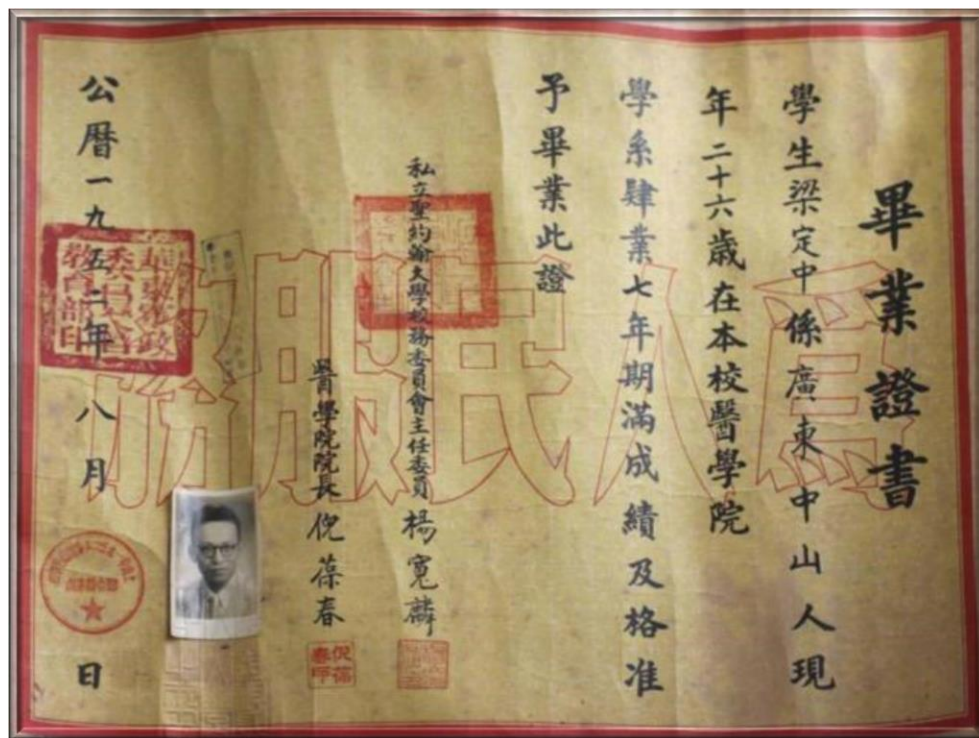 畢業證書
學生梁定中係廣東中山人現
年二十六歲在本校醫學院
學系肄業七年期滿成績及格准
予畢業此證
私立聖約翰大學校務委員會主任委員 楊寬麟
醫學院院長 倪葆春
倪葆春印
公曆一九五二年八月 日
華東軍政委員會教育部印
為人民服務